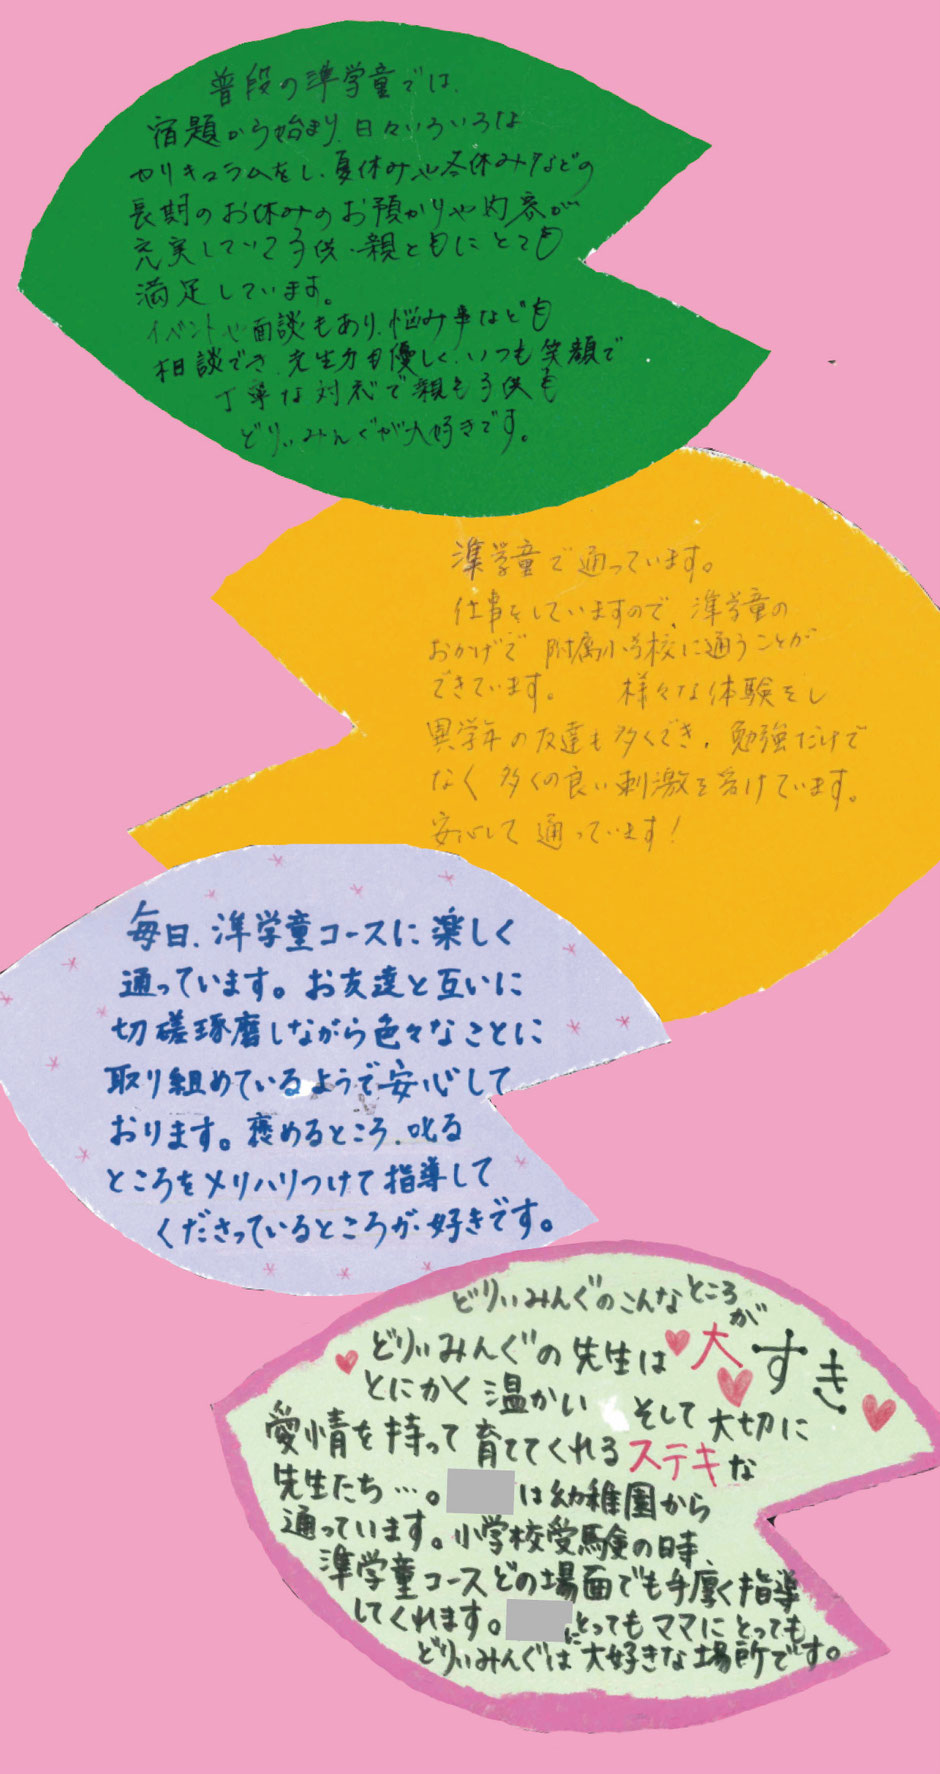 普段の準学童では、
宿題から始まり、日々いろいろな
カリキュラムをし、夏休みや冬休みなどの
長期のお休みのお預かりや内容が
充実していて子供・親ともにとても
満足しています。
イベントや面談もあり、悩み事なども
相談でき、先生方も優しく、いつも笑顔で
丁寧な対応で親も子供も
どりぃみんぐが大好きです。
準学童で通っています。
仕事をしていますので、準学童の
おかげで 附属小学校に通うことが
できています。 様々な体験をし
異学年の友達も多くでき、勉強だけで
なく 多くの良い刺激を受けています。
安心して 通っています!
毎日、準学童コースに楽しく
通っています。お友達と互いに
切磋琢磨しながら色々なことに
取り組めているようで安心して
おります。褒めるところ、叱る
ところをメリハリつけて指導して
くださっているところが好きです。
どりぃみんぐのこんなところが
大すき
どりぃみんぐの先生は
とにかく温かい そして大切に
愛情を持って育ててくれるステキな
先生たち…。 は幼稚園から
通っています。小学校受験の時、
準学童コースどの場面でも手厚く指導
してくれます。 にとってもママにとっても
どりぃみんぐは大好きな場所です。